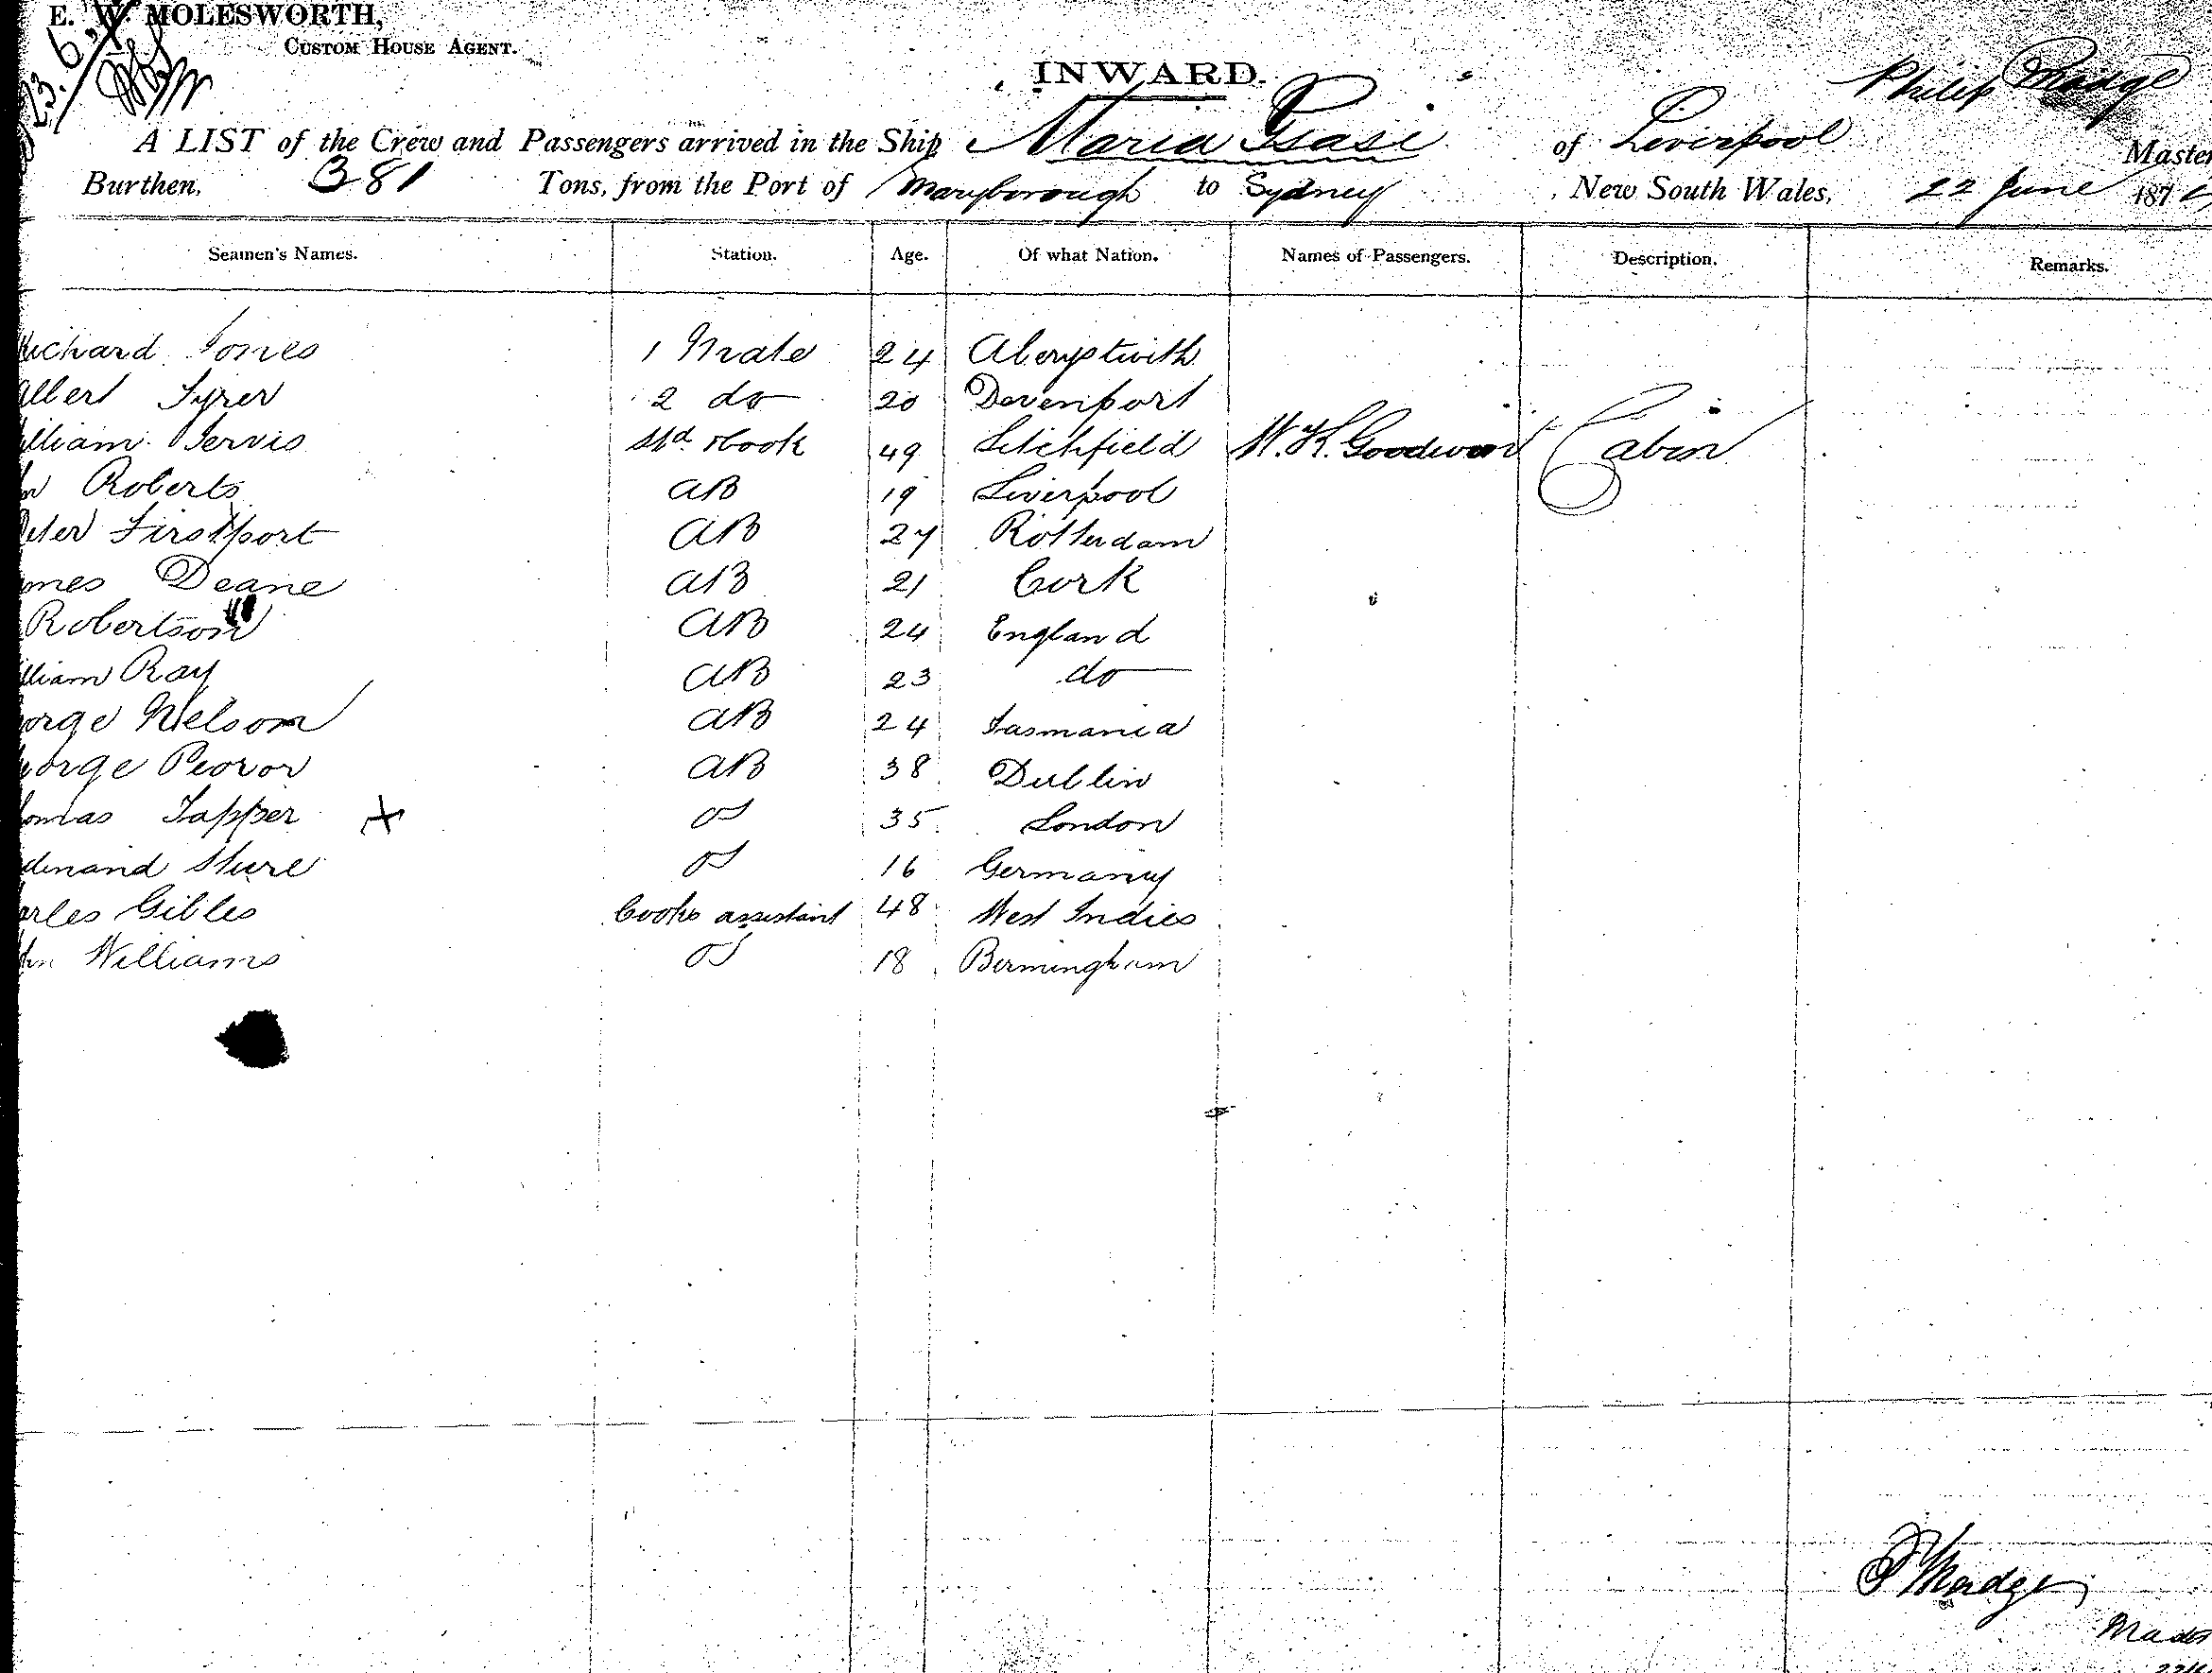 E. W. MOLESWORTH,
CUSTOM HOUSE AGENT.
INWARD.
Philip Madge
A LIST of the Crew and Passengers arrived in the Ship Maria Ysasi of Liverpool Master
Burthen, 381 Tons, from the Port of Maryborough to Sydney, New South Wales, 22 June 187
Seamen's Names. Station. Age. Of what Nation. Names of Passengers. Description. Remarks.
Richard Jones 1 Mate 24 Aberystwith
Albert Tyrer 2 do 20 Devenport
lliam Jervis Std & Cook 49 Litchfield W. H. Goodwin Cabin
n Roberts AB 19 Liverpool
Peter Firstport AB 27 Rotterdam
mes Deane AB 21 Cork
Robertson AB 24 England
lliam Ray AB 23 do
orge Nelson AB 24 Tasmania
eorge Peovor AB 38 Dublin
omas Tapper X OS 35 London
dinand Sture OS 16 Germany
arles Gibles Cooks assistant 48 West Indies
hn Williams OS 18 Birmingham
P Madge